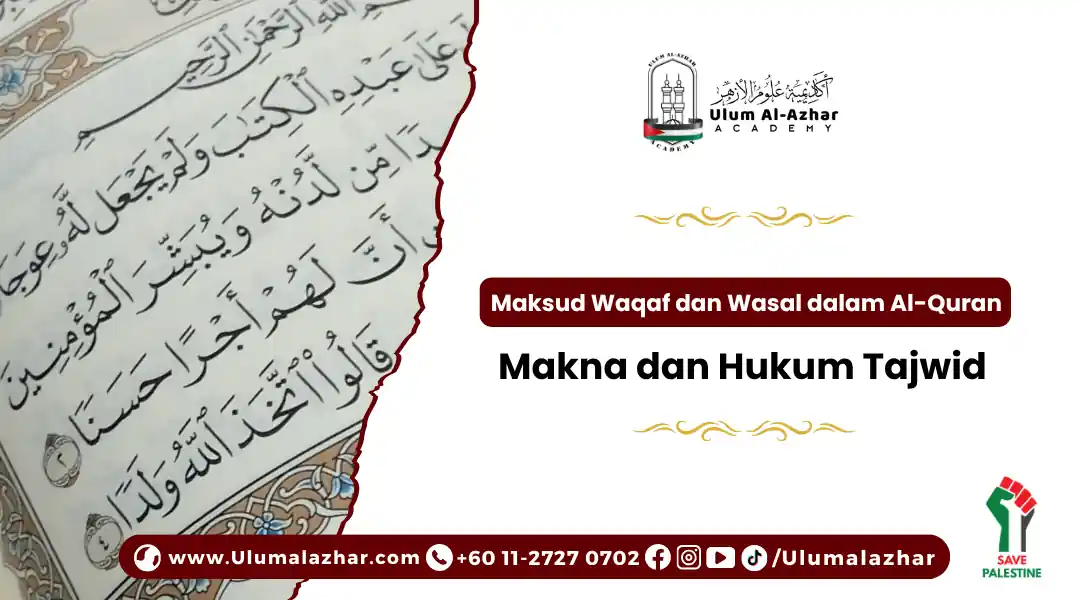 بِسْمِ ٱللَّهِ ٱلرَّحْمَٰنِ ٱلرَّحِيمِ
عَلَىٰ عَبْدِهِ ٱلْكِتَٰبَ وَلَمْ يَجْعَل لَّهُۥ عِوَجَا
مِّن لَّدُنْهُ وَيُبَشِّرَ ٱلْمُؤْمِنِينَ
أَنَّ لَهُمْ أَجْرًا حَسَنًا ٢
قَالُوا۟ ٱتَّخَذَ ٱللَّهُ وَلَدًا ٤
ULUM AL-AZHAR
ACADEMY
أكاديمية علوم الأزهر
Ulum Al-Azhar
ACADEMY
Maksud Waqaf dan Wasal dalam Al-Quran
Makna dan Hukum Tajwid
www.Ulumalazhar.com +60 11-2727 0702 /Ulumalazhar
SAVE
PALESTINE